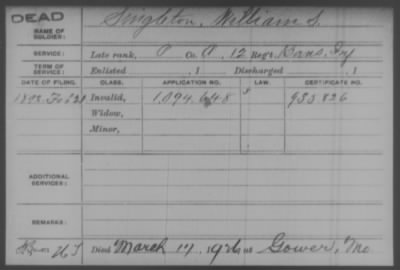 DEAD
NAME OF SOLDIER: Singleton, William S.
SERVICE: Late rank, P Co. A, 12 Regt. Kans. Inf
TERM OF SERVICE: Enlisted , 1 Discharged , 1
DATE OF FILING. CLASS. APPLICATION NO. LAW. CERTIFICATE NO.
1892 Invalid, 1.094.648 935.826
Widow,
Minor,
ADDITIONAL SERVICES:
REMARKS:
Died March 17, 1926 at Gower, Mo.